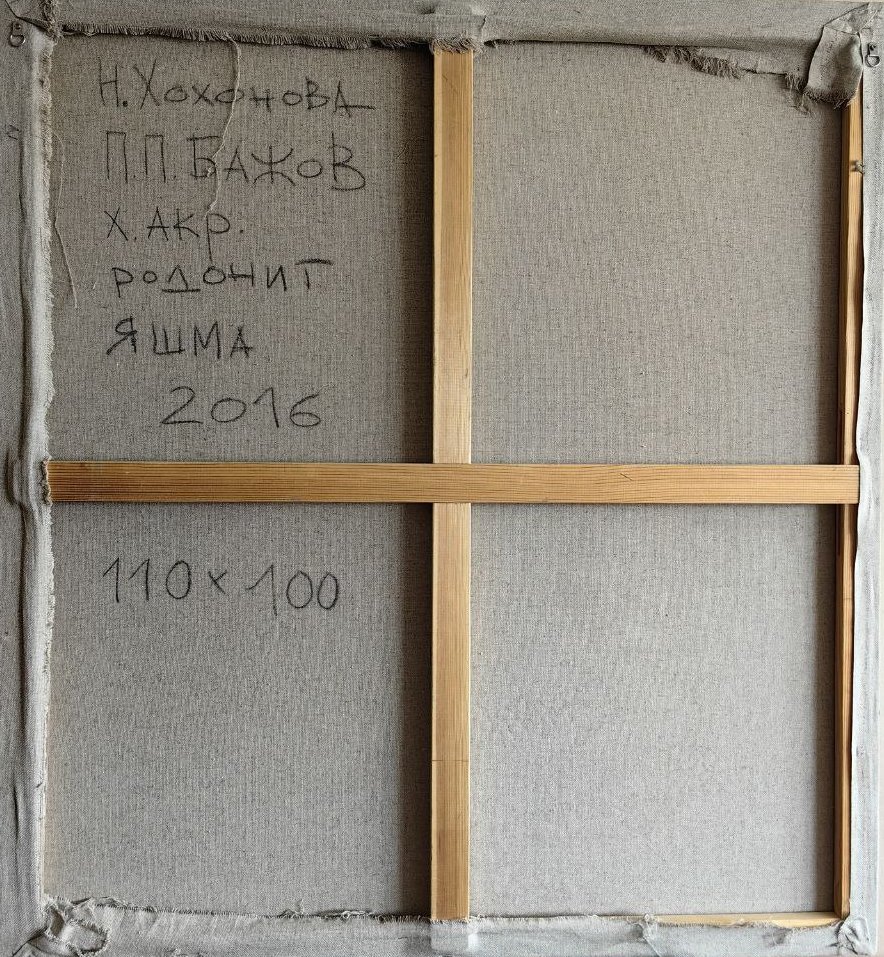 Н. Хохонова
П.П. Бажов
х. акр.
родонит
яшма
2016
110 х 100